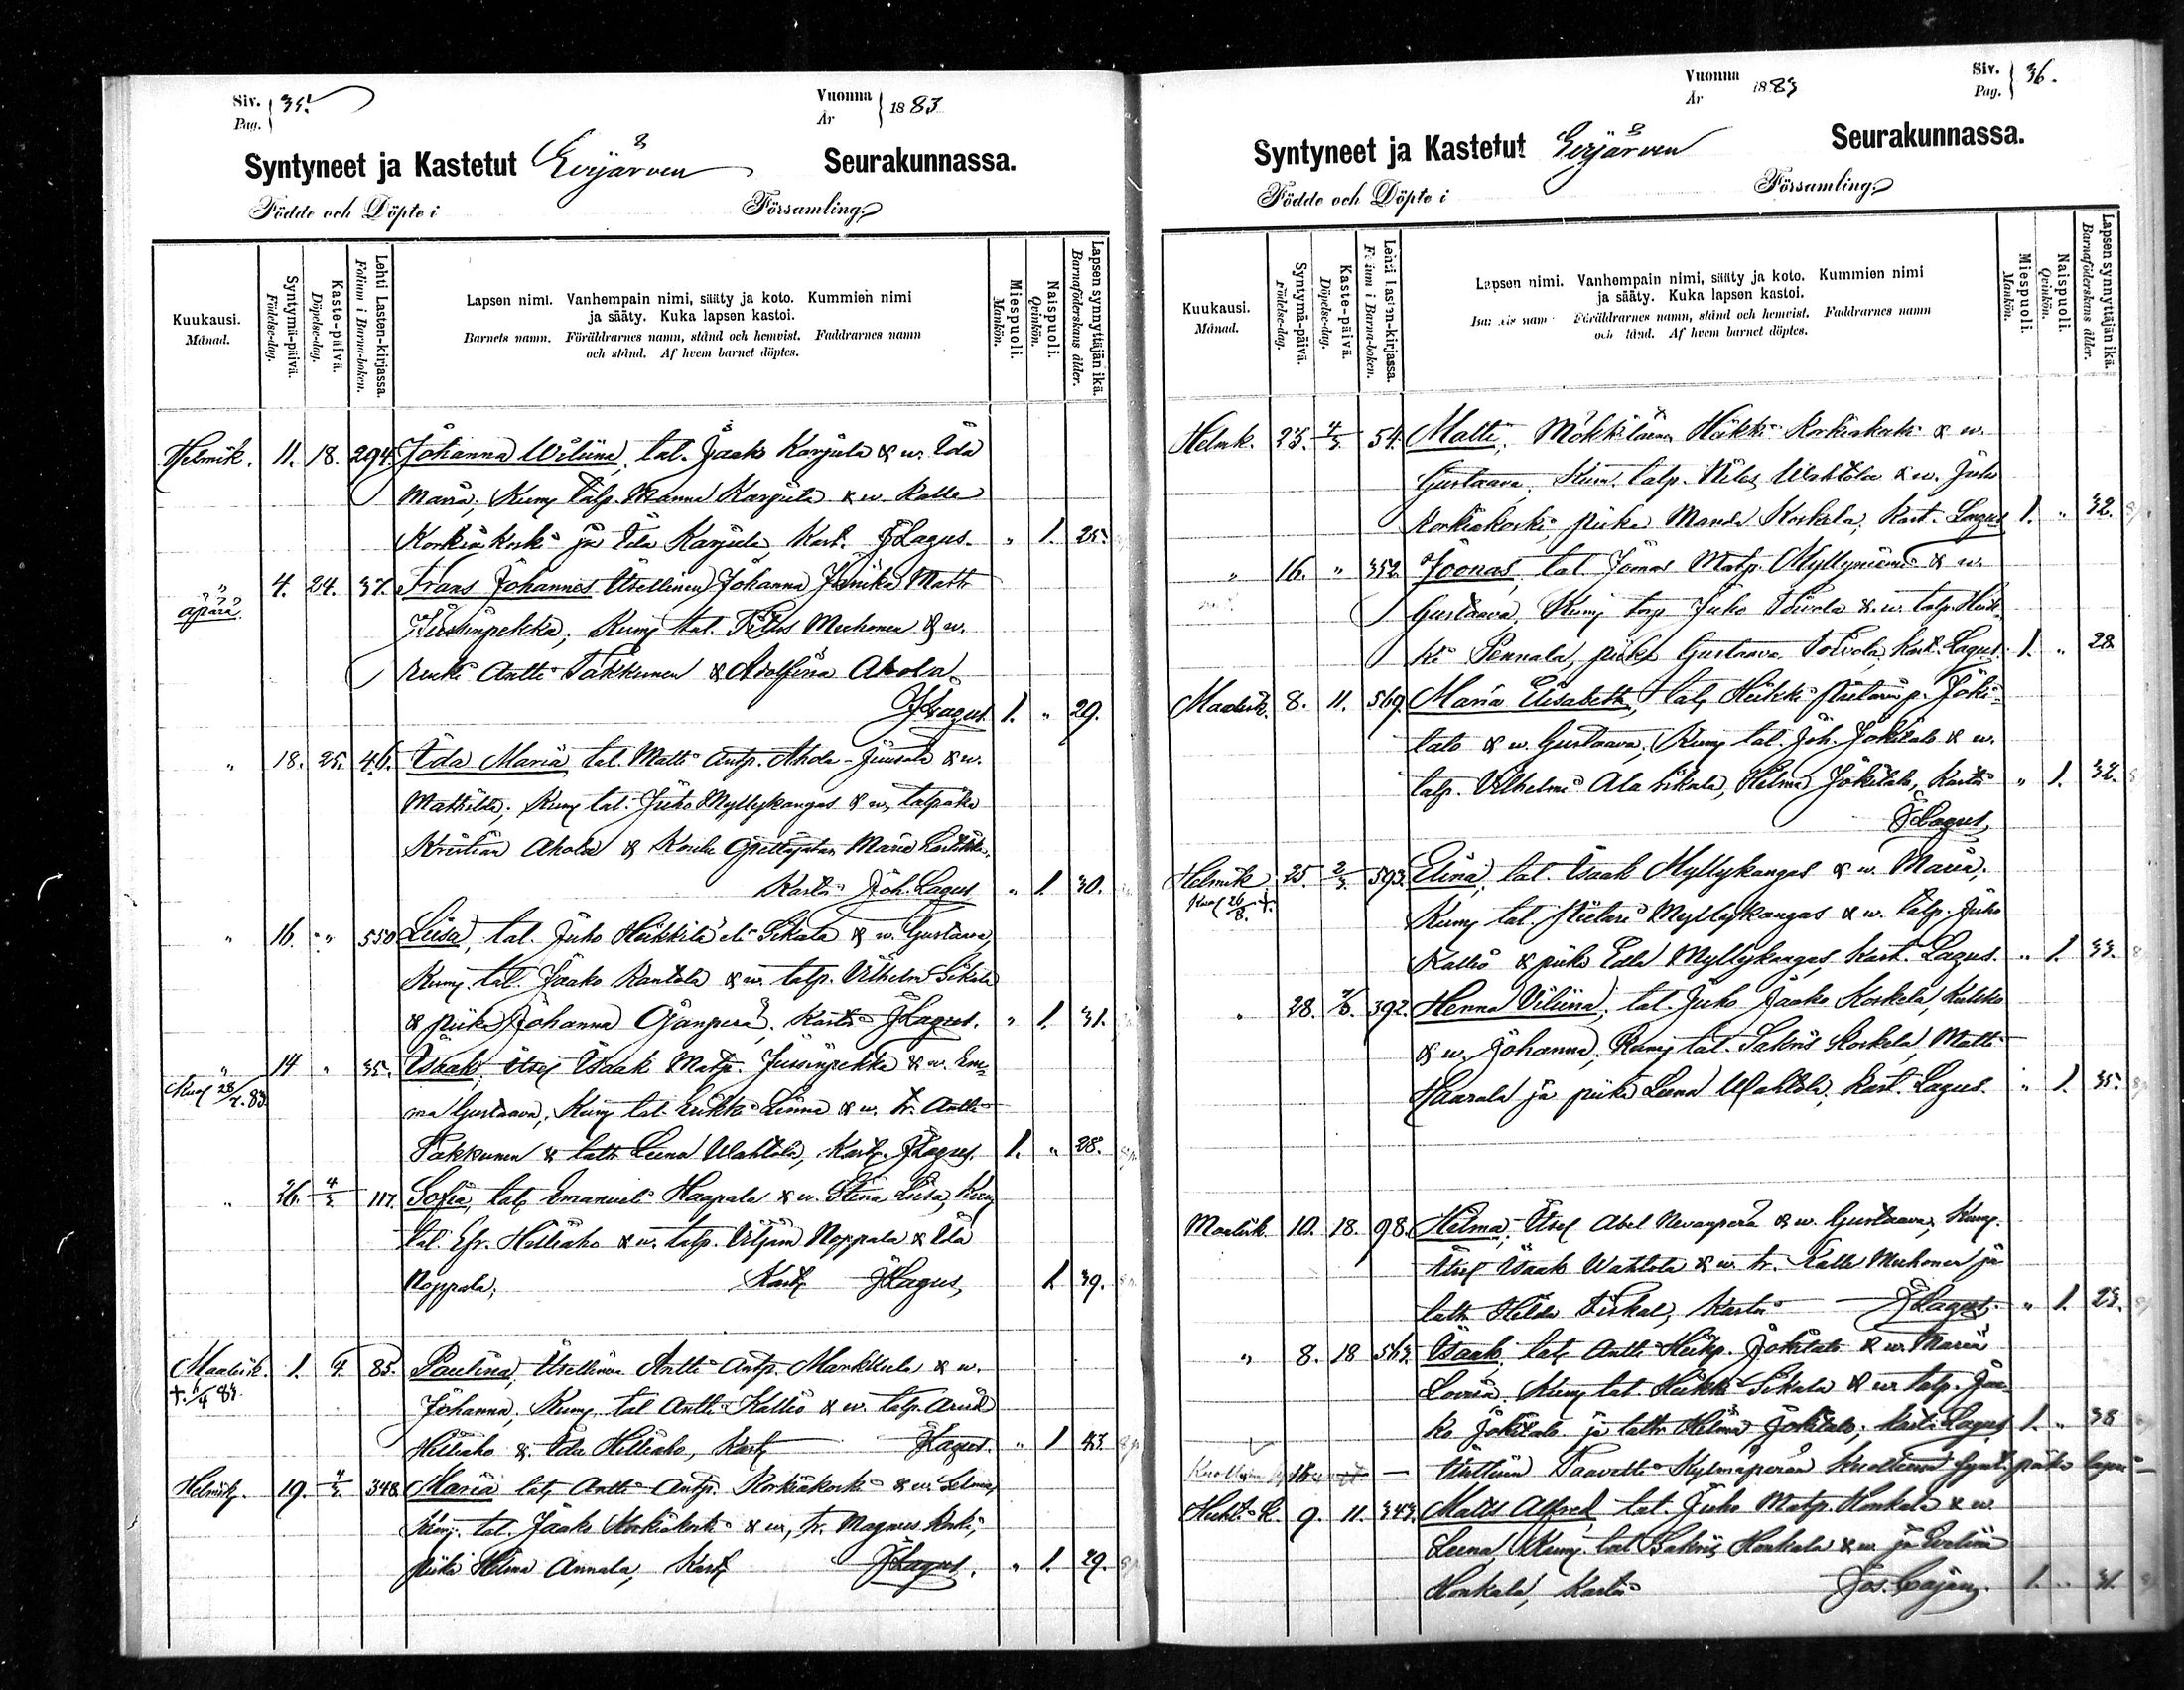 Siv. 35.
Pag.
Vuonna 1883
År
Syntyneet ja Kastetut Evijärven Seurakunnassa.
Födde och Döpte i Församling.
Kuukausi. Månad.
Syntymä-päivä. Födelse-dag.
Kaste-päivä. Döpelse-dag.
Lehti Lasten-kirjassa. Folium i Barna-boken.
Lapsen nimi. Vanhempain nimi, sääty ja koto. Kummien nimi
ja sääty. Kuka lapsen kastoi.
Barnets namn. Föräldrarnes namn, stånd och hemvist. Faddrarnes namn
och stånd. Af hvem barnet döptes.
Miespuoli. Mankön.
Naispuoli. Qvinkön.
Lapsen synnyttäjän ikä. Barnaföderskans ålder.
Helmik. 11. 18. 294. Johanna Wiliina, tal. Jaako Karjula & w. Ida
Maria; Kumj talp. Manne Karjula & w. Kalle
Korkiakoski ja Ida Karjula, Kast. J Lagus. " 1. 25.
" 4. 24. 37. Frans Johannes Itsellinen Johanna
äpärä Jussinpekka; Kumj tal. Mechonen & w.
renki Antti Takkunen & Adolfina Ahola
J Lagus. 1. " 29.
" 18. 25. 46. Ida Maria tal. Matti Antp. Ahola-Juusola & w.
Mathilda; Kumj tal. Juho Myllykangas & w,
Kristian Ahola & Koulu Opettajatar Maria
Kasti Joh. Lagus " 1. 30.
" 16. " 550 Liisa, tal. Juho Heikkilä eli Sikala & w. Gustava,
Kumj. tal. Jaako Rantala & w. talp. Vilhelm Sikala
& piika Johanna Ojanperä, Kasti J Lagus. " 1. 31.
" 14 " 35. Isaak, Itsel Isaak Matp. Jussinpekka & w. Em-
Kuol 28/7.83 ma Gustaava, Kumj tal. Erikki Linna & w. tr. Antti
Takkunen & tatr Leena Wahtola, Kast. J Lagus. 1. " 28.
" 26. 4/3. 117. Sofia, tal Emanueli Haapala & w. Stina Liisa, Kumj
tal. Efr. Hilliaho & w. talp. Viljam Noppala & Ida
Noppala, Kast J Lagus, 1 39.
Maalisk. 1. 4. 85. Paulina, Itsellinen Antti Antp. Markkula & w.
Johanna, Kumj. tal Antti Kallio & w. talp. Arvid
Hilliaho & Ida Hilliaho, Kast J Lagus. " 1 43.
Helmik. 19. 4/3. 348 Maria tal Antti Antp. Korkiakoski & w. Selma,
Kumj. tal. Jaako Korkiakoski & w, tr. Magnus Koski,
piika Helma Annala, Kast J Lagus. " 1. 29.
Siv. 36.
Pag.
Vuonna 1883
År
Syntyneet ja Kastetut Evijärven Seurakunnassa.
Födde och Döpte i Församling.
Kuukausi. Månad.
Syntymä-päivä. Födelse-dag.
Kaste-päivä. Döpelse-dag.
Lehti Lasten-kirjassa. Folium i Barna-boken.
Lapsen nimi. Vanhempain nimi, sääty ja koto. Kummien nimi
ja sääty. Kuka lapsen kastoi.
Föräldrarnes namn, stånd och hemvist. Faddrarnes namn
Af hvem barnet döptes.
Miespuoli. Mankön.
Naispuoli. Qvinkön.
Lapsen synnyttäjän ikä. Barnaföderskans ålder.
Helmk. 23. 4/3. 54. Matti, Mökkiläinen Heikki Korkiakoski & w.
Gustaava, Kum. talp. Nilos Wahtola & w. Juho
Korkiakoski, piika Manda Koskela, Kast. Lagus 1. " 32.
" 16. " 352. Joonas, tal. Joonas Matp. Myllyniemi & w.
Gustaava, Kumj torp Juho Toivola & w. talp. Heik-
ki Pennala, piika Gustaava Toivola, Kast. Lagus. 1. " 28
Maalisk. 8. 11. 569. Maria Elisabeth, tal Heikki Jöki-
talo & w. Gustaava, Kumj tal. Joh. Jokitalo & w.
talp. Vilhelmi Ala Sikala, Helma Jokitalo, Kasti " 1. 32.
J Lagus,
Helmik 25. 2/3. 593. Elina, tal. Isaak Myllykangas & w. Maria,
Kuol 26/8. + Kumj tal. Myllykangas & w. talp. Juho
Kallio & piika Edla Myllykangas, Kast. Lagus. " 1. 33.
" 28. 392. Henna Viliina, tal. Juho Jaako Koskela,
& w. Johanna, Kumj tal. Sakris Koskela, Matti
Haarala ja piika Leena Wahtola, Kast. Lagus. " 1. 35.
Maalisk. 10. 18. 98. Hilma, Itsel Abel Nevanperä & w. Gustaava, Kumj.
Itsel Isaak Wahtola & w. tr. Kalle Mechonen ja
tatr Hilda Kasti J Lagus. " 1. 23.
" 8. 18 563. Isaak, tal Antti Heikp. Jokitalo & w. Maria
Lovisa. Kumj tal. Heikki Sikala & w talp. Jaa-
ko Jokitalo ja tatr Hilma Jokitalo, kast. Lagus 1. " 38
18 — Itsellisen Taavetti Kylmäperän kuolleena synt. lapsi
Huht-k. 9. 11. 343. Matts Alfred tal. Juho Matp. Honkala & w.
Leena, Kumj tal Sakris Honkala & w. ja Evelina
Honkala, Kasti Jos. Cajan. 1. " 31.